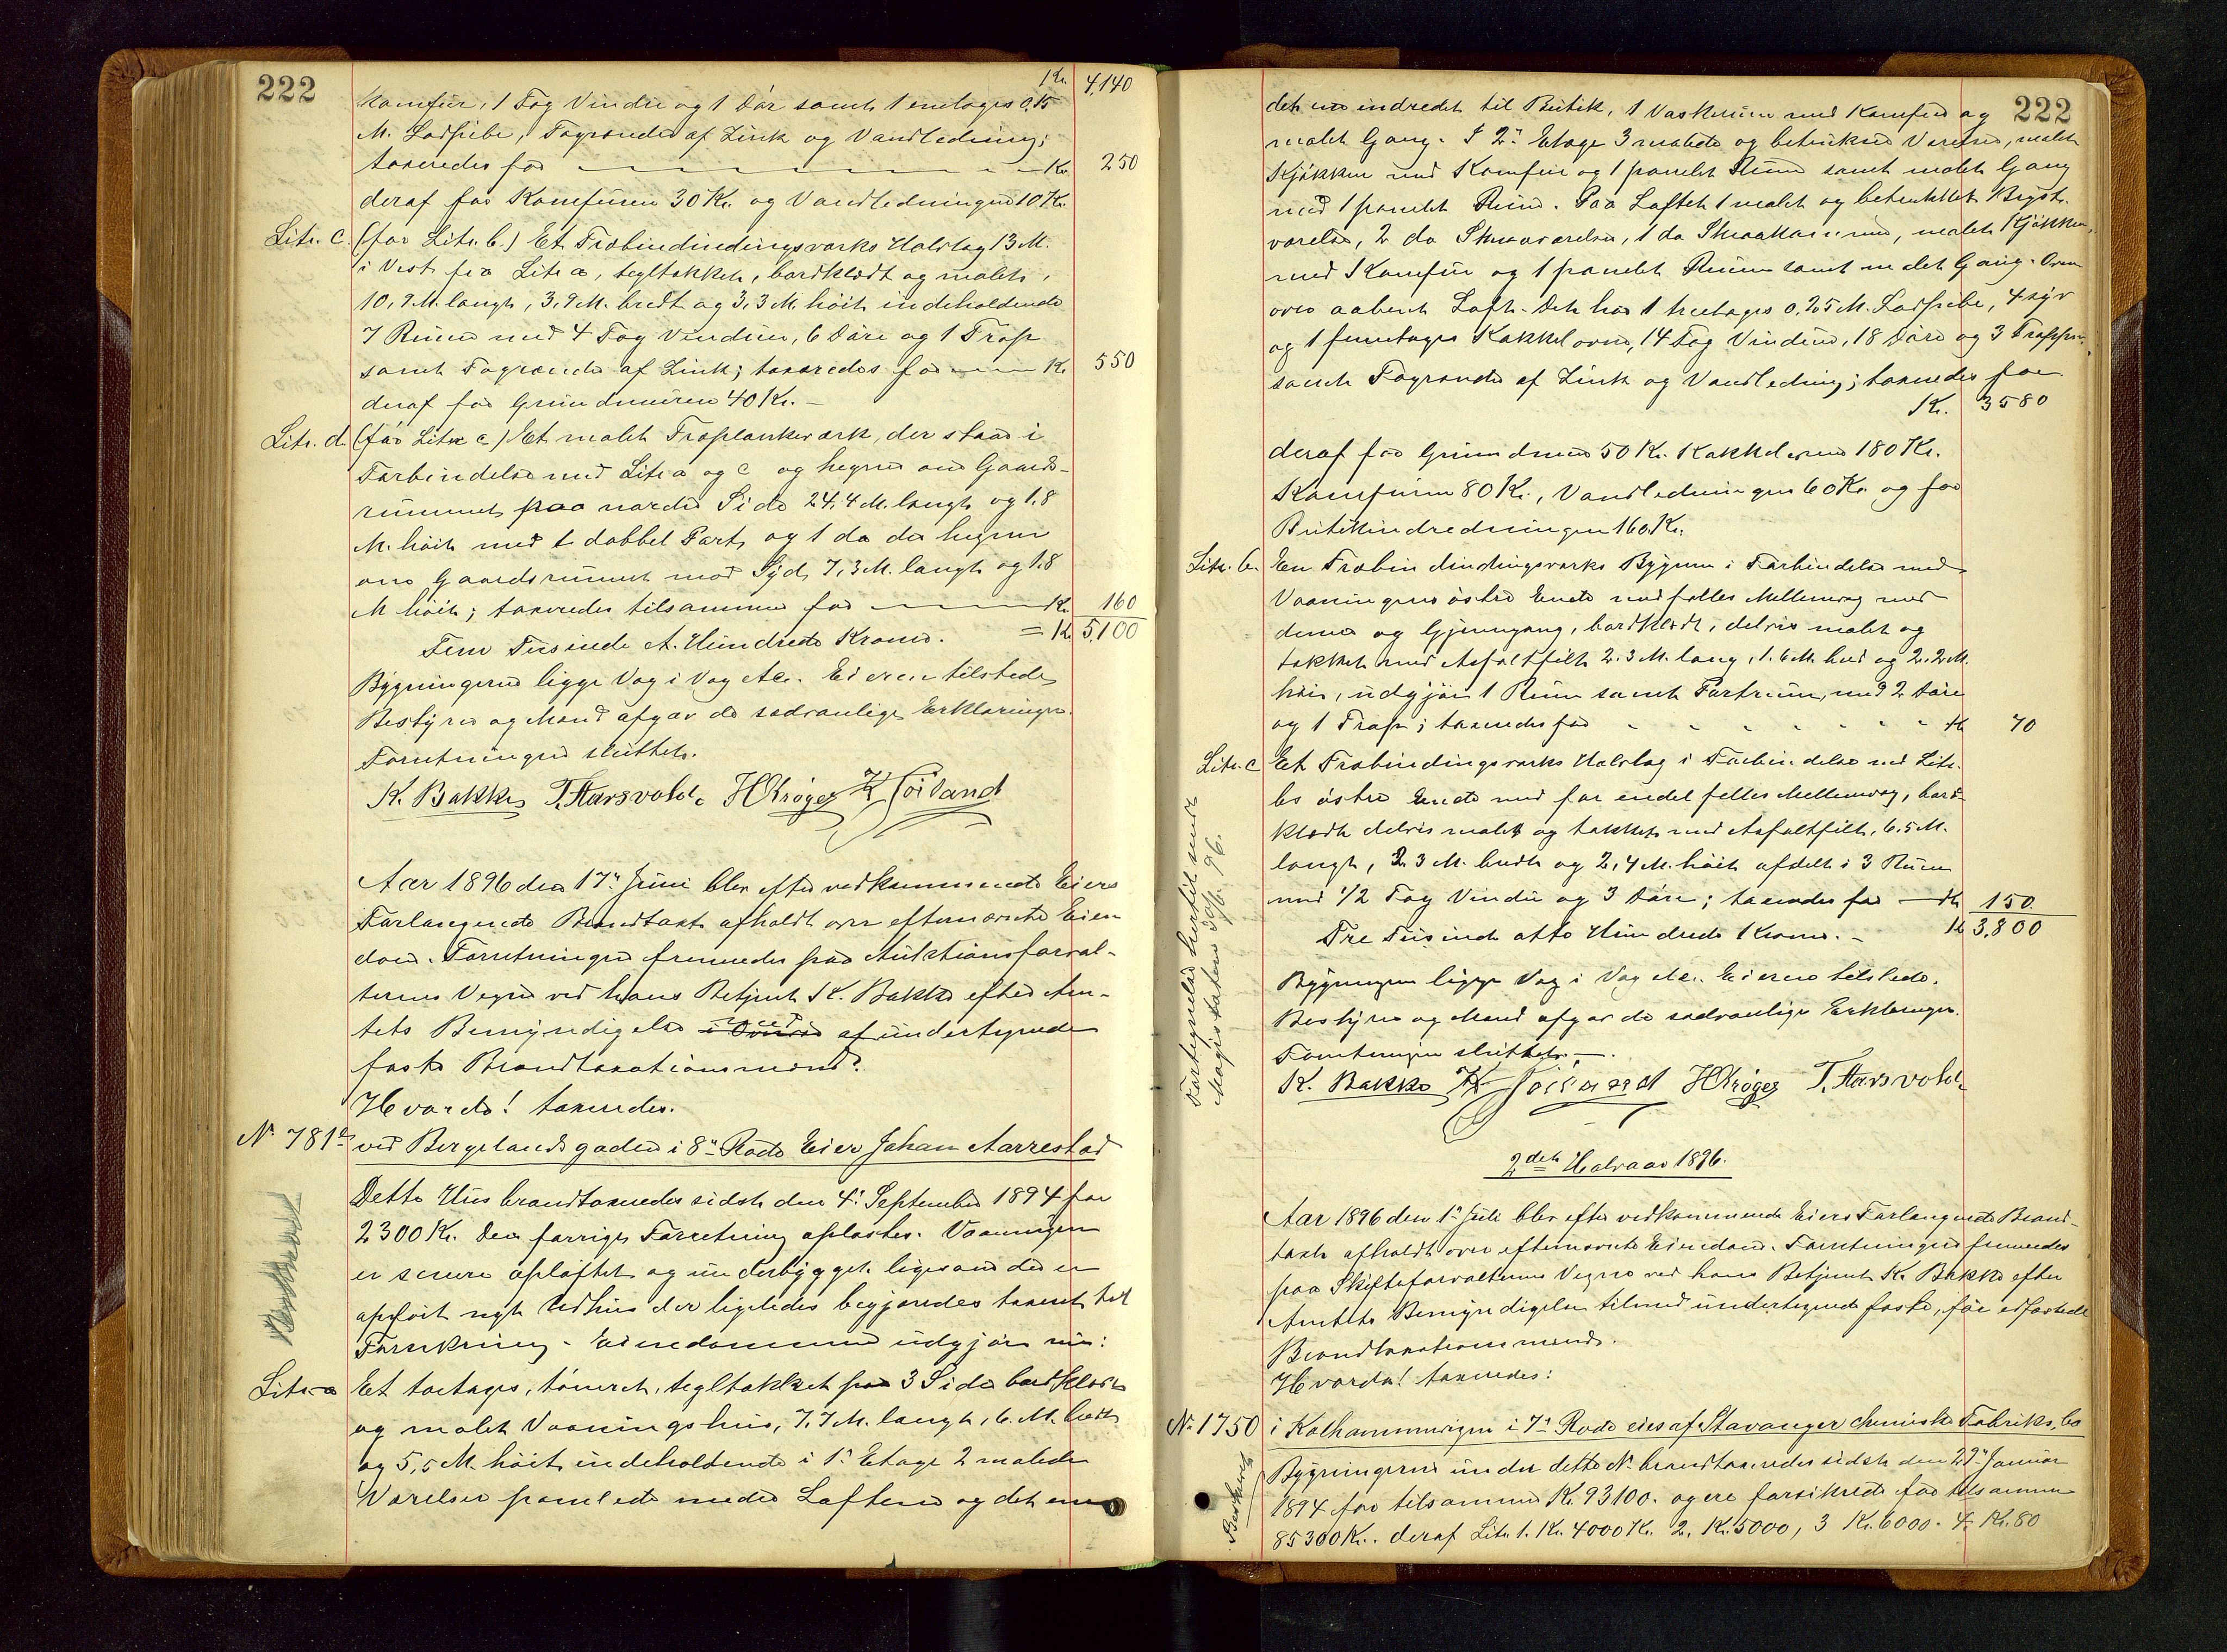 222
Kr. 4,140
Komfur, 1 Fag Vindu og 1 Dør samt 1 enetages 0,15
M. Ladpibe, Tagrender af Zink og Vandledning;
taxeredes for Kr. 250
deraf for Komfuren 30 Kr. og Vandledningen 10 Kr.
Litr. c. (før Litr. b.) Et Træbindingsværks Halvtag 13 M.
i Vest fra Litr a, tegltækket, bordklædt og malet,
10,9 M. langt, 3,9 M. bredt og 3,3 M. høit indeholdende
7 Rum med 4 Fag Vinduer, 6 Døre og 1 Trap
samt Tagrende af Zink; taxeredes for Kr. 550
deraf for Grundmuren 40 Kr. –
Litr. d. (før Litr c) Et malet Træplankeværk, der staar i
Forbindelse med Litr a og c og hegner om Gaards-
rummet paa nordre Side 24,4 M. langt og 1,8
M. høit med 1 dobbel Port, og 1 do der hegner
om Gaardsrummet mod Syd, 7,3 M. langt og 1,8
M høit; taxeredes tilsammen for Kr. 160
Fem Tusinde et Hundrede Kroner. = Kr. 5,100
Bygningerne ligge Væg i Væg etc. Eieren tilstede
Bestyrer og Mænd afgav de sædvanlige Erklæringer.
Forretningen sluttet.
K. Bakke T. Aarsvold. H Krøger K Soiland
Aar 1896 den 17. Juni blev efter vedkommende Eiers
Forlangende Brandtaxt afholdt over efternævnte Eien
dom. Forretningen fremmedes paa Auktionsforval-
terens Vegne ved hans Betjent K. Bakke efter Am-
tets Bemyndigelse med af undertegnede
faste Brandtaxationsmænd.
Hvorda! taxeredes.
No 781 ved Bergelandsgaden i 8de Rode Eier Johan Aarrestad
Dette Hus brandtaxeredes sidst den 4. September 1894 for
2300 Kr. Den forrige Forretning oplæstes. Vaaningen
er senere opløftet og underbygget ligesom der er
opført nyt Udhus der ligeledes begjæredes taxeret til
Forsikring. Eiendommen udgjør nu:
Litr. a Et toetages, tømret, tegltækket paa 3 Sider bordklædt
og malet Vaaningshus, 7,7 M. langt, 6. M. bredt
og 5,5 M. høit, indeholdende i 1. Etage 2 malede
Værelser panelede under Loftene og det ene
222
det ene indredet til Butik, 1 Vaskerum med Komfur og
malet Gang. I 2. Etage 3 malede og betrukne Værelser, malet
Kjøkken med Komfur og 1 panelet Rum samt malet Gang
med 1 panelet Rum. Paa Loftet 1 malet og betrukket Kvist-
værelse, 2 do Skraaværelser, 1 do Skraakammer, malet Kjøkken,
med Komfur og 1 panelet Rum samt malet Gang. Oven
over aabent Loft. Det har 1 treetages 0,25 M. Ladpibe, 4 syv
og 1 femetages Kakkelovne, 14 Fag Vinduer, 18 Døre og 3 Trapper,
samt Tagrender af Zink og Vandledning; taxeredes for
Kr. 3580
deraf for Grundmur 50 Kr. Kakkelovne 180 Kr.
Komfuren 80 Kr., Vandledningen 60 Kr. og for
Butikindredningen 160 Kr.
Litr. b. En Træbindingsværks Bygning i Forbindelse med
Vaaningens østre Ende med fælles Mellemvæg med
denne og Gjennemgang, bordklædt, delvis malet og
tækket med Asfaltfilt 2.3 M. lang, 1.6 M. bred og 2.2 M.
høi, udgjør 1 Rum samt Portrum, med 2 Døre
og 1 Trap; taxeredes for Kr 70
Litr. c Et Træbindingsværks Halvtag i Forbindelse med Litr.
bs østre Ende med for endel fælles Mellemvæg, bord-
klædt delvis malet og tækket med Asfaltfilt, 6.5 M.
langt, 2,3 M. bredt og 2,4 M. høit afdelt i 3 Rum
med 1/2 Fag Vindu og 3 Døre; taxeredes for Kr 150
Tre Tusinde otte Hundrede Kroner. – Kr 3,800
Bygningen ligge Væg i Væg etc. Eieren tilstede.
Bestyrer og Mænd afgav de sædvanlige Erklæringer.
Forretningen sluttet. –
Fortegnelse hertil sendt
Magistraten 30/6 96.
K. Bakke K Soiland H Krøger T. Aarsvold.
2det Halvaar 1896.
Aar 1896 den 1. Juli blev efter vedkommende Eiers Forlangende Brand-
taxt afholdt over efternævnte Eiendom. Forretningen fremmedes
paa Skifteforvalterens Vegne ved hans Betjent K. Bakke efter
Amtets Bemyndigelse tilmed undertegnede faste, før edfæstede
Brandtaxationsmænd.
Hvorda! taxeredes:
No 1750 i Kalhammervigen i 7de Rode eies af Stavanger chemiske Fabriks Co
Bygningerne under dette No brandtaxeredes sidst den 29. Januar
1894 for tilsammen Kr. 93100. og ere forsikrede for tilsammen
85300 Kr. deraf Litr. 1. Kr. 4000 Kr. 2. Kr. 5000, 3 Kr. 6000. 4. Kr. 80